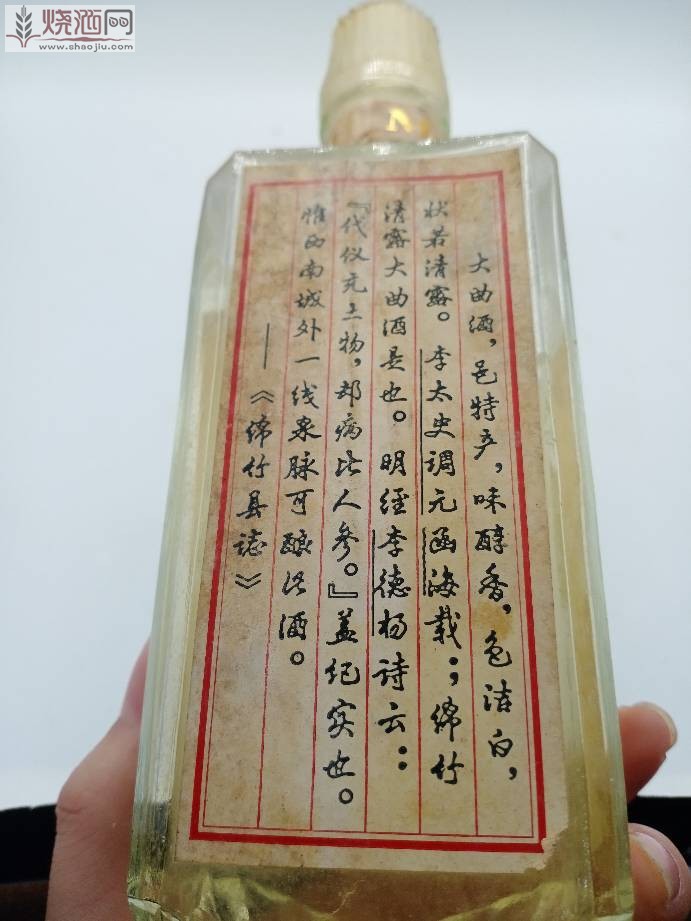 烧酒网
www.shaojiu.com
N
大曲酒，邑特产，味醇香，色洁白，
状若清露。李太史调元函海载；绵竹
清露大曲酒是也。明经李德杨诗云：
『代仪充土物，却病比人参。』盖纪实也。
惟西南城外一线泉脉可酿此酒。
—《绵竹县志》